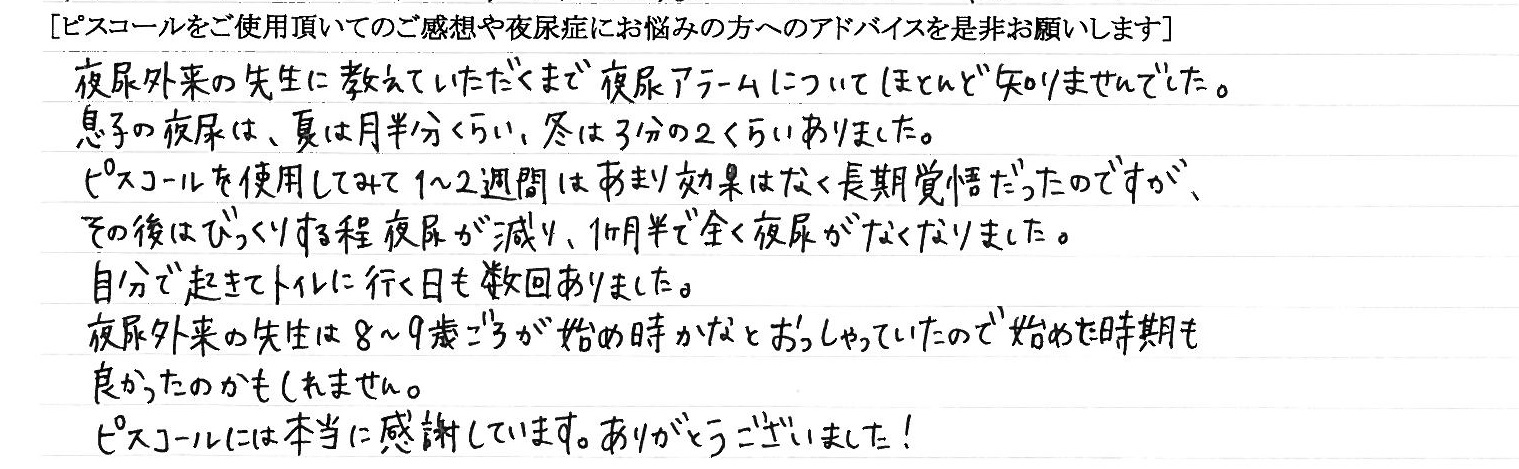 [ピスコールをご使用頂いてのご感想や夜尿症にお悩みの方へのアドバイスを是非お願いします]
夜尿外来の先生に教えていただくまで夜尿アラームについてほとんど知りませんでした。
息子の夜尿は、夏は月半分くらい、冬は3分の2くらいありました。
ピスコールを使用してみて1〜2週間はあまり効果はなく長期覚悟だったのですが、
その後はびっくりする程夜尿が減り、1ヶ月半で全く夜尿がなくなりました。
自分で起きてトイレに行く日も数回ありました。
夜尿外来の先生は8〜9歳ごろが始め時かなとおっしゃっていたので始めた時期も
良かったのかもしれません。
ピスコールには本当に感謝しています。ありがとうございました!